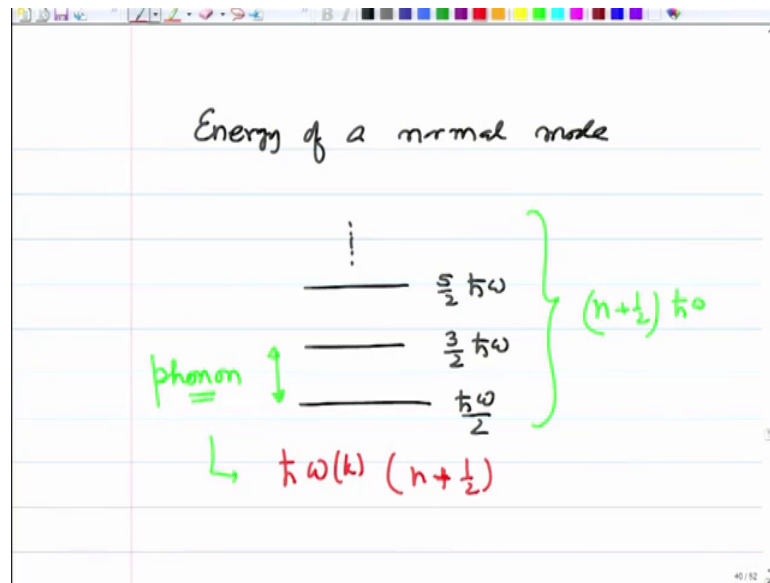 Energy of a normal mode
5/2 ħω
3/2 ħω
(n+1/2) ħ
phonon
ħω/2
ħω(k) (n+1/2)
40/52